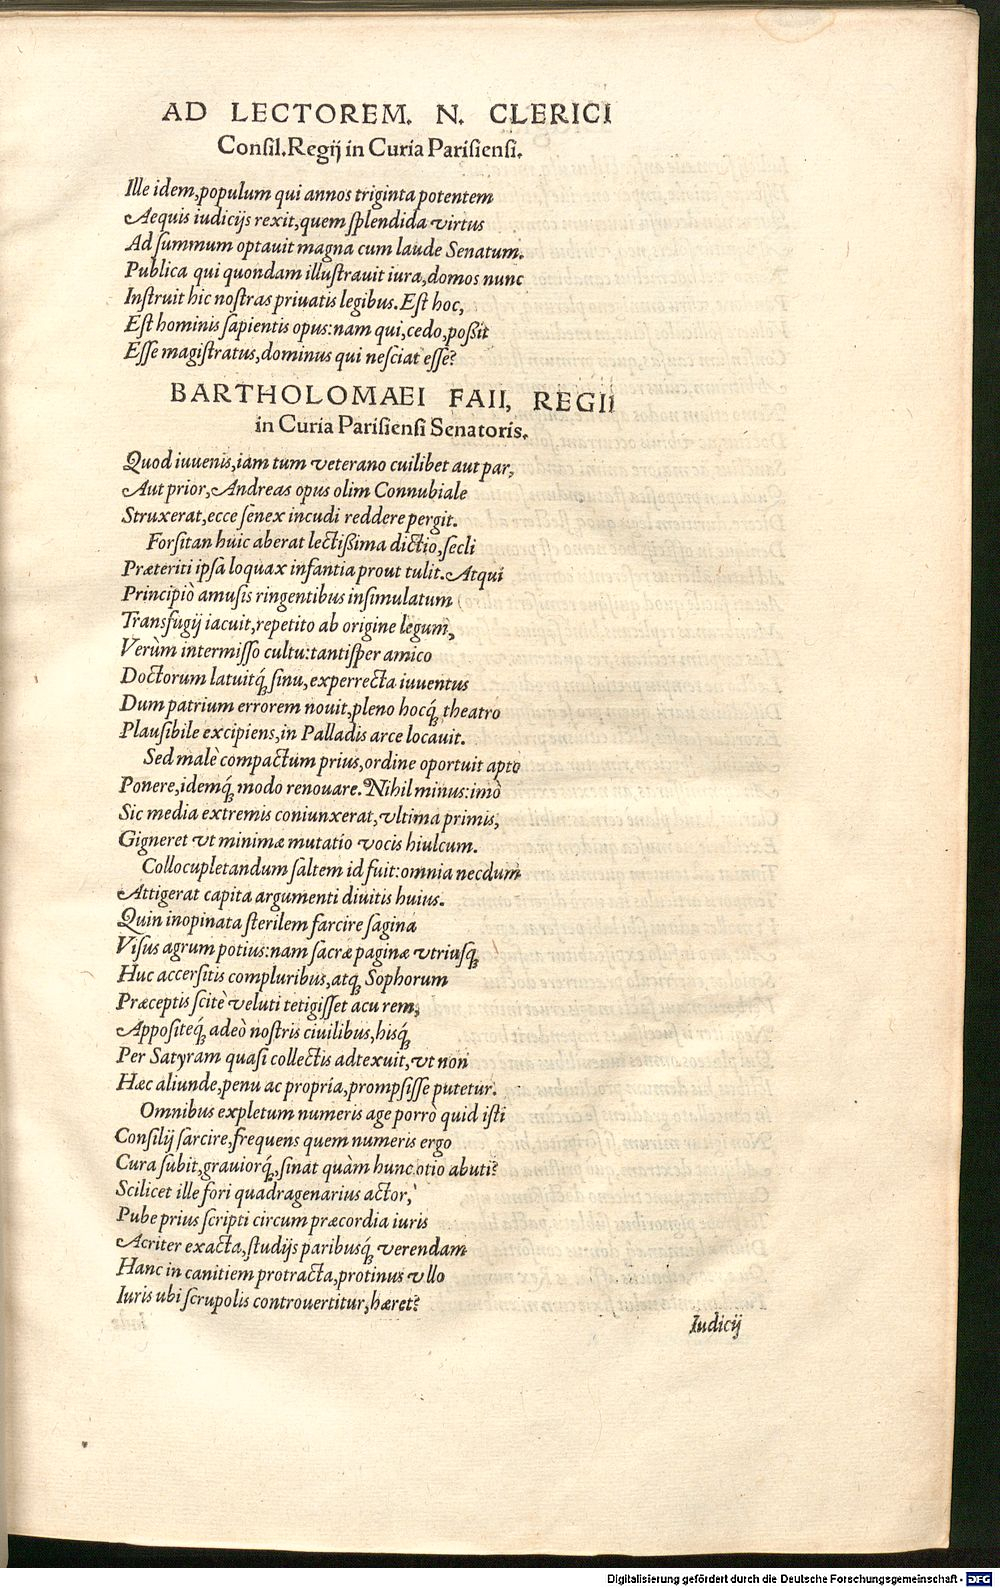 AD LECTOREM. N. CLERICI
Conſil. Regij in Curia Pariſienſi.
Ille idem, populum qui annos triginta potentem
Aequis iudicijs rexit, quem ſplendida virtus
Ad ſummum optauit magna cum laude Senatum.
Publica qui quondam illuſtrauit iura, domos nunc
Inſtruit hic noſtras priuatis legibus. Eſt hoc,
Eſt hominis ſapientis opus: nam qui, cedo, poßit
Eſſe magiſtratus, dominus qui neſciat eſſe?
BARTHOLOMAEI FAII, REGII
in Curia Pariſienſi Senatoris.
Quod iuuenis, iam tum veterano cuilibet aut par,
Aut prior, Andreas opus olim Connubiale
Struxerat, ecce ſenex incudi reddere pergit.
Forſitan huic aberat lectißima dictio, ſecli
Præteriti ipſa loquax infantia prout tulit. Atqui
Principiò amuſis ringentibus inſimulatum
Transfugij iacuit, repetito ab origine legum,
Verùm intermiſſo cultu: tantiſper amico
Doctorum latuitq́; ſinu, experrecta iuuentus
Dum patrium errorem nouit, pleno hocq́; theatro
Plauſibile excipiens, in Palladis arce locauit.
Sed malè compactum prius, ordine oportuit apto
Ponere, idemq́; modo renouare. Nihil minus: imò
Sic media extremis coniunxerat, vltima primis,
Gigneret vt minimæ mutatio vocis hiulcum.
Collocupletandum ſaltem id fuit: omnia necdum
Attigerat capita argumenti diuitis huius.
Quin inopinata ſterilem farcire ſagina
Viſus agrum potius: nam ſacræ paginæ vtriuſq;
Huc accerſitis compluribus, atq; Sophorum
Præceptis ſcitè veluti tetigiſſet acu rem,
Appoſiteq́; adeò noſtris ciuilibus, hisq́;
Per Satyram quaſi collectis adtexuit, vt non
Hæc aliunde, penu ac propria, prompſiſſe putetur.
Omnibus expletum numeris age porrò quid iſti
Conſilij ſarcire, frequens quem numeris ergo
Cura ſubit, grauiorq́;, ſinat quàm hunc otio abuti?
Scilicet ille fori quadragenarius actor,
Pube prius ſcripti circum præcordia iuris
Acriter exacta, ſtudijs paribuſq́; verendam
Hanc in canitiem protracta, protinus vllo
Iuris vbi ſcrupolis controuertitur, hæret?
Iudicij
Digitalisierung gefördert durch die Deutsche Forschungsgemeinschaft - DFG